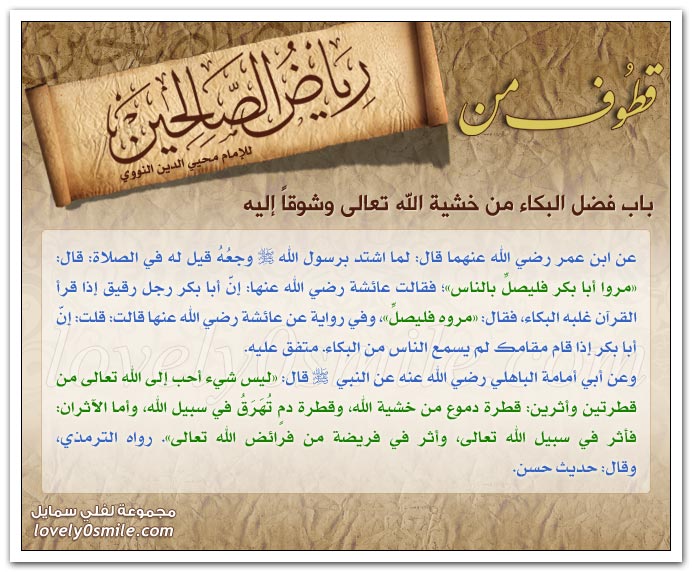 قطوف من
رِيَاضُ الصَّالِحِين
للإمام محيي الدين النووي
باب فضل البكاء من خشية الله تعالى وشوقاً إليه
عن ابن عمر رضي الله عنهما قال: لما اشتد برسول الله ﷺ وجعُهُ قيل له في الصلاة: قال:
«مروا أبا بكر فليصلِّ بالناس»؛ فقالت عائشة رضي الله عنها: إنّ أبا بكر رجل رقيق إذا قرأ
القرآن غلبه البكاء، فقال: «مروه فليصلِّ»، وفي رواية عن عائشة رضي الله عنها قالت: قلت: إنّ
أبا بكر إذا قام مقامك لم يسمع الناس من البكاء. متفق عليه.
وعن أبي أمامة الباهلي رضي الله عنه عن النبي ﷺ قال: «ليس شيء أحب إلى الله تعالى من
قطرتين وأثرين: قطرة دموع من خشية الله، وقطرة دمٍ تُهَرَقُ في سبيل الله، وأما الآثران:
فأثر في سبيل الله تعالى، وأثر في فريضة من فرائض الله تعالى». رواه الترمذي،
وقال: حديث حسن.
lovely0smile.com
مجموعة لفلي سمايل
lovely0smile.com